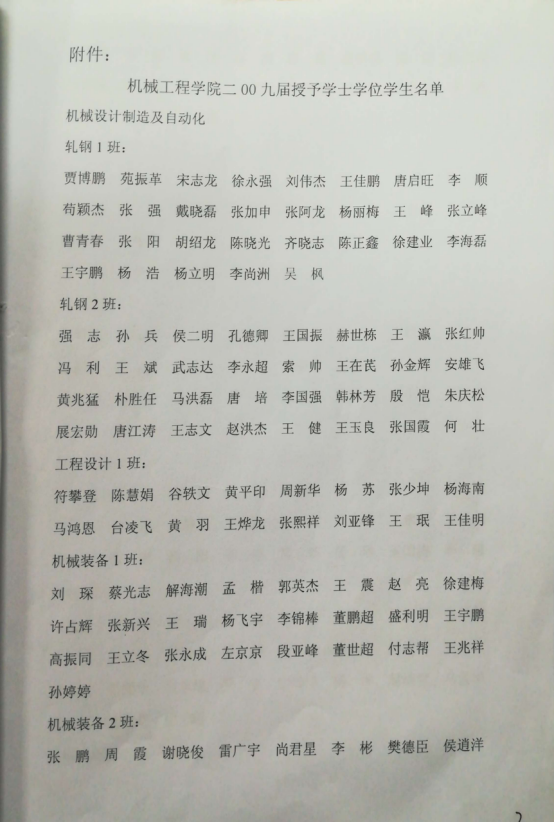 附件：
机械工程学院二00九届授予学士学位学生名单
机械设计制造及自动化
轧钢1班：
贾博鹏 苑振革 宋志龙 徐永强 刘伟杰 王佳鹏 唐启旺 李 顺
苟颖杰 张 强 戴晓磊 张加申 张阿龙 杨丽梅 王 峰 张立峰
曹青春 张 阳 胡绍龙 陈晓光 齐晓志 陈正鑫 徐建业 李海磊
王宇鹏 杨 浩 杨立明 李尚洲 吴 枫
轧钢2班：
强 志 孙 兵 侯二明 孔德卿 王国振 赫世栋 王 瀛 张红帅
冯 利 王 斌 武志达 李永超 索 帅 王在芪 孙金辉 安雄飞
黄兆猛 朴胜任 马洪磊 唐 培 李国强 韩林芳 殷 恺 朱庆松
展宏勋 唐江涛 王志文 赵洪杰 王 健 王玉良 张国霞 何 壮
工程设计1班：
符攀登 陈慧娟 谷轶文 黄平印 周新华 杨 苏 张少坤 杨海南
马鸿恩 台凌飞 黄 羽 王烨龙 张熙祥 刘亚锋 王 珉 王佳明
机械装备1班：
刘 琛 蔡光志 解海潮 孟 楷 郭英杰 王 震 赵 亮 徐建梅
许占辉 张新兴 王 瑞 杨飞宇 李锦棒 董鹏超 盛利明 王宇鹏
高振同 王立冬 张永成 左京京 段亚峰 董世超 付志帮 王兆祥
孙婷婷
机械装备2班：
张 鹏 周 霞 谢晓俊 雷广宇 尚君星 李 彬 樊德臣 侯逍洋
2